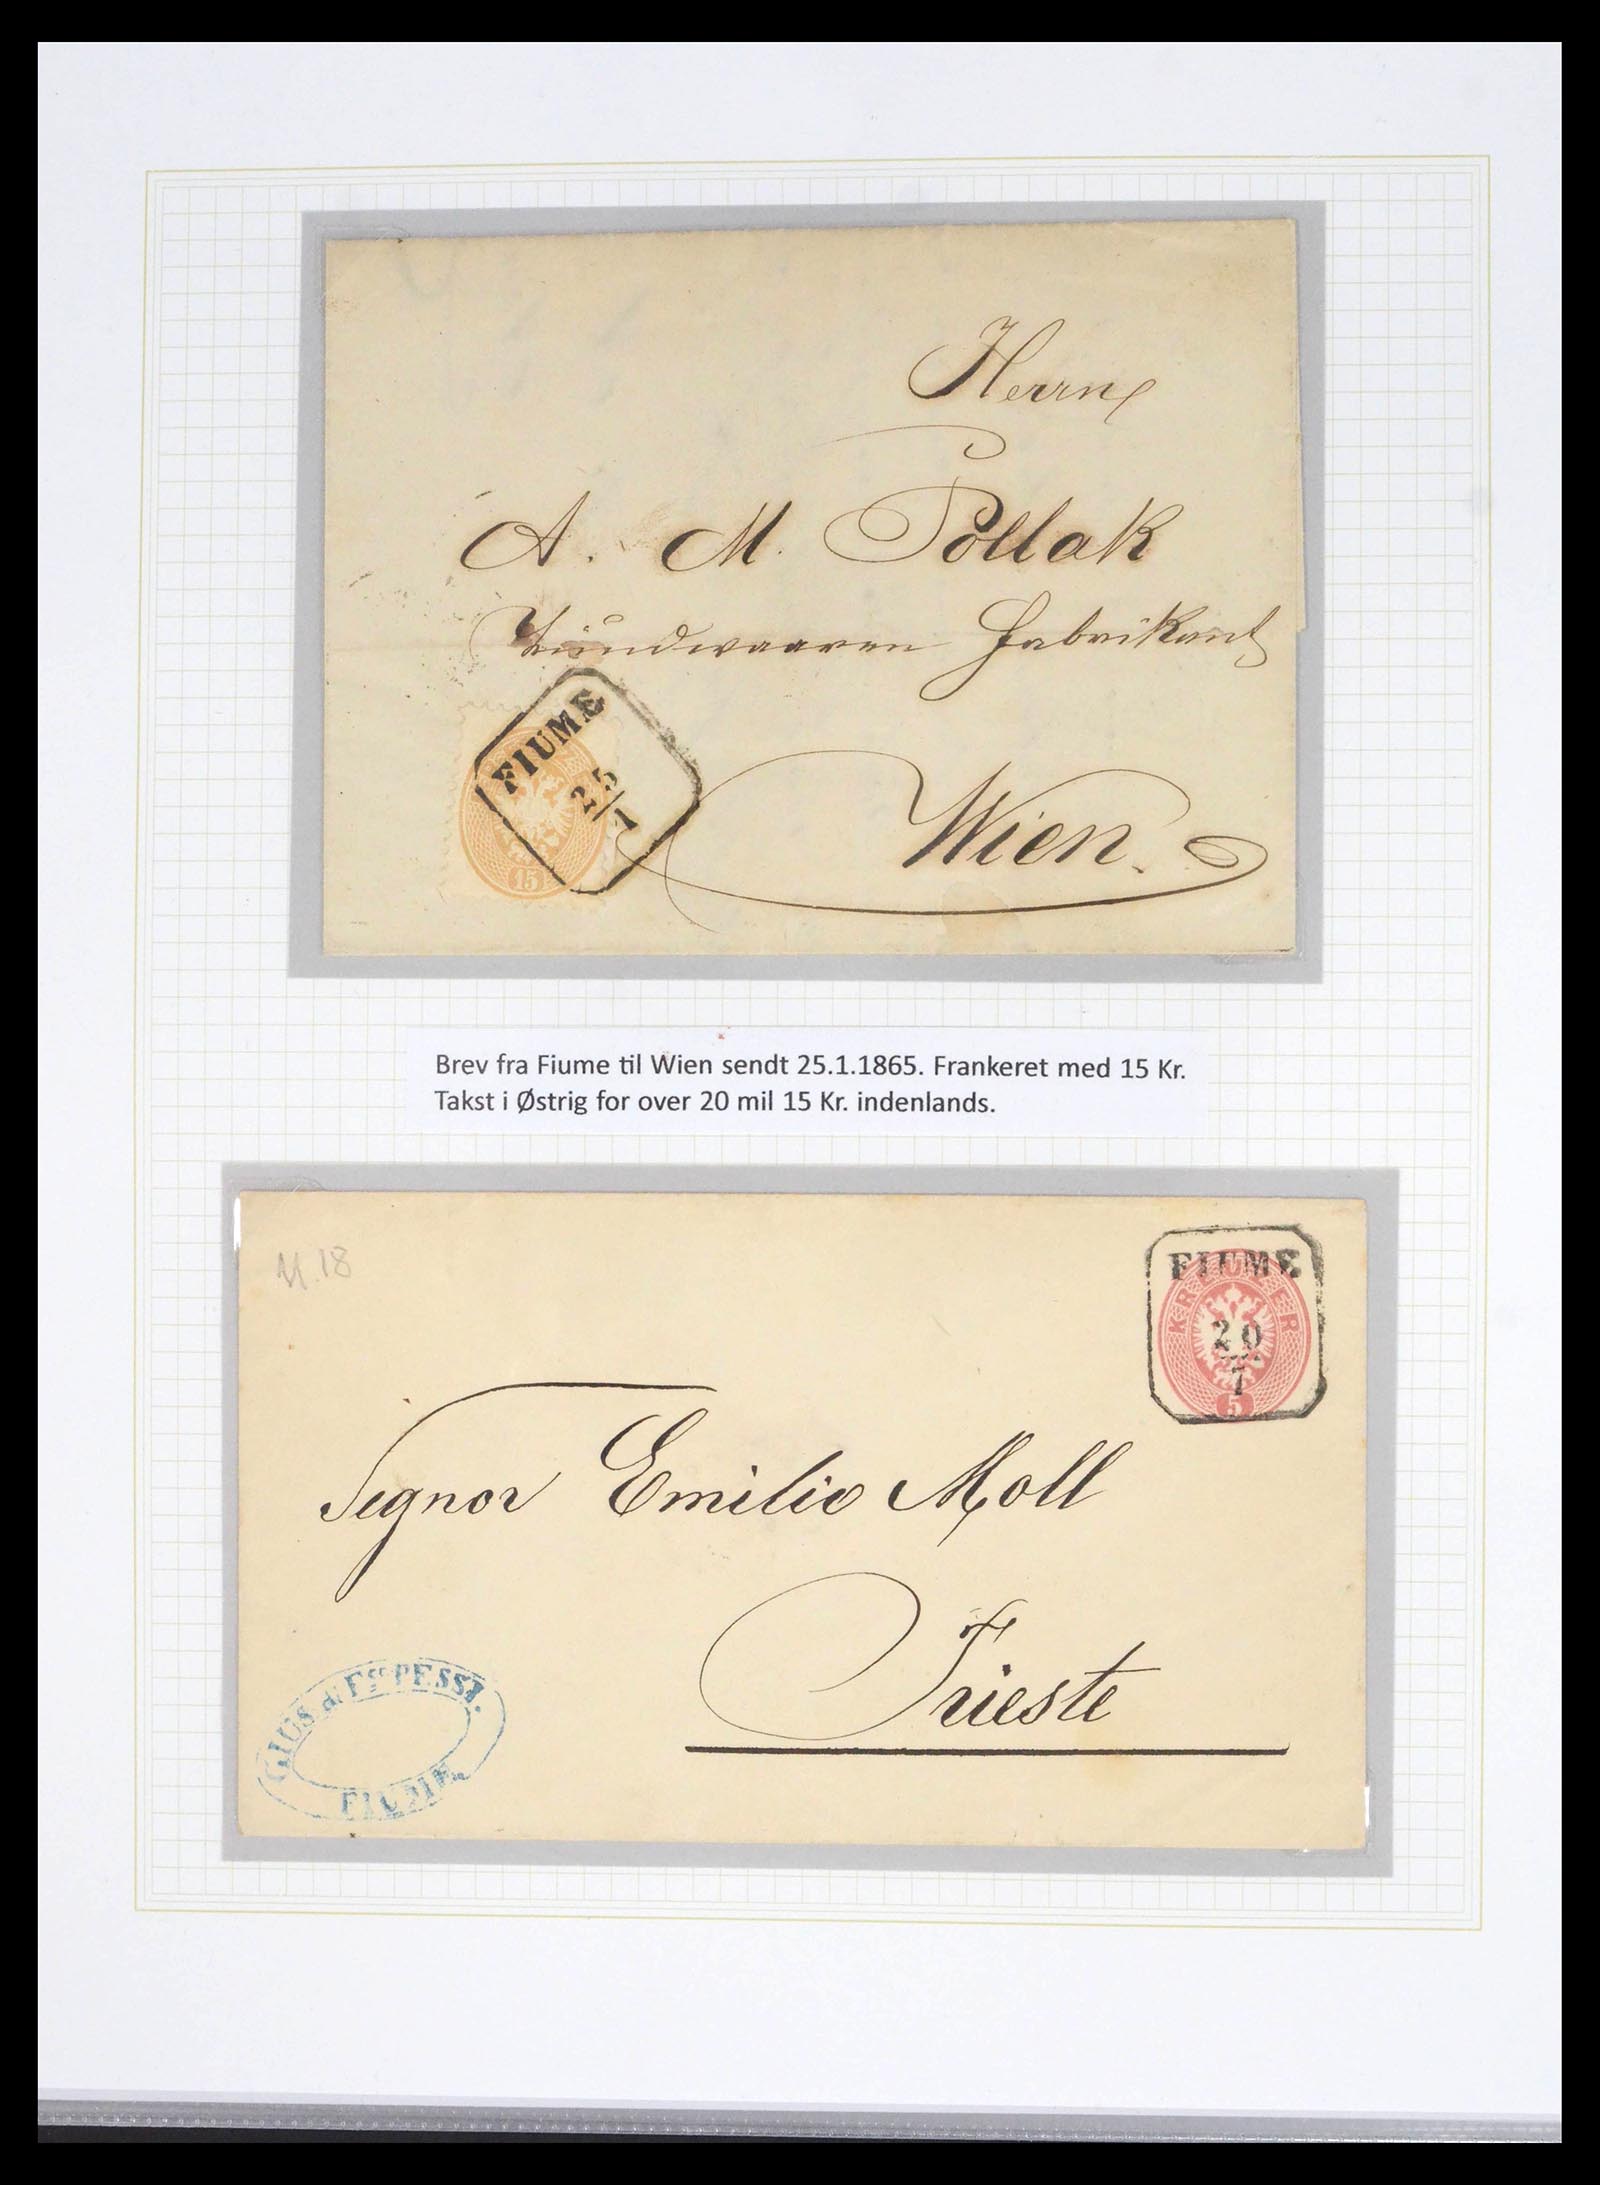 Herrn
A. M. Pollak
Zündwaaren Fabrikant
FIUME
25/1
15
Wien.
Brev fra Fiume til Wien sendt 25.1.1865. Frankeret med 15 Kr.
Takst i Østrig for over 20 mil 15 Kr. indenlands.
U.18
FIUME
KREUZER
20
7
5
Segnor Emilio Moll
Trieste
GIUS. & FR. PESSI.
FIUME.